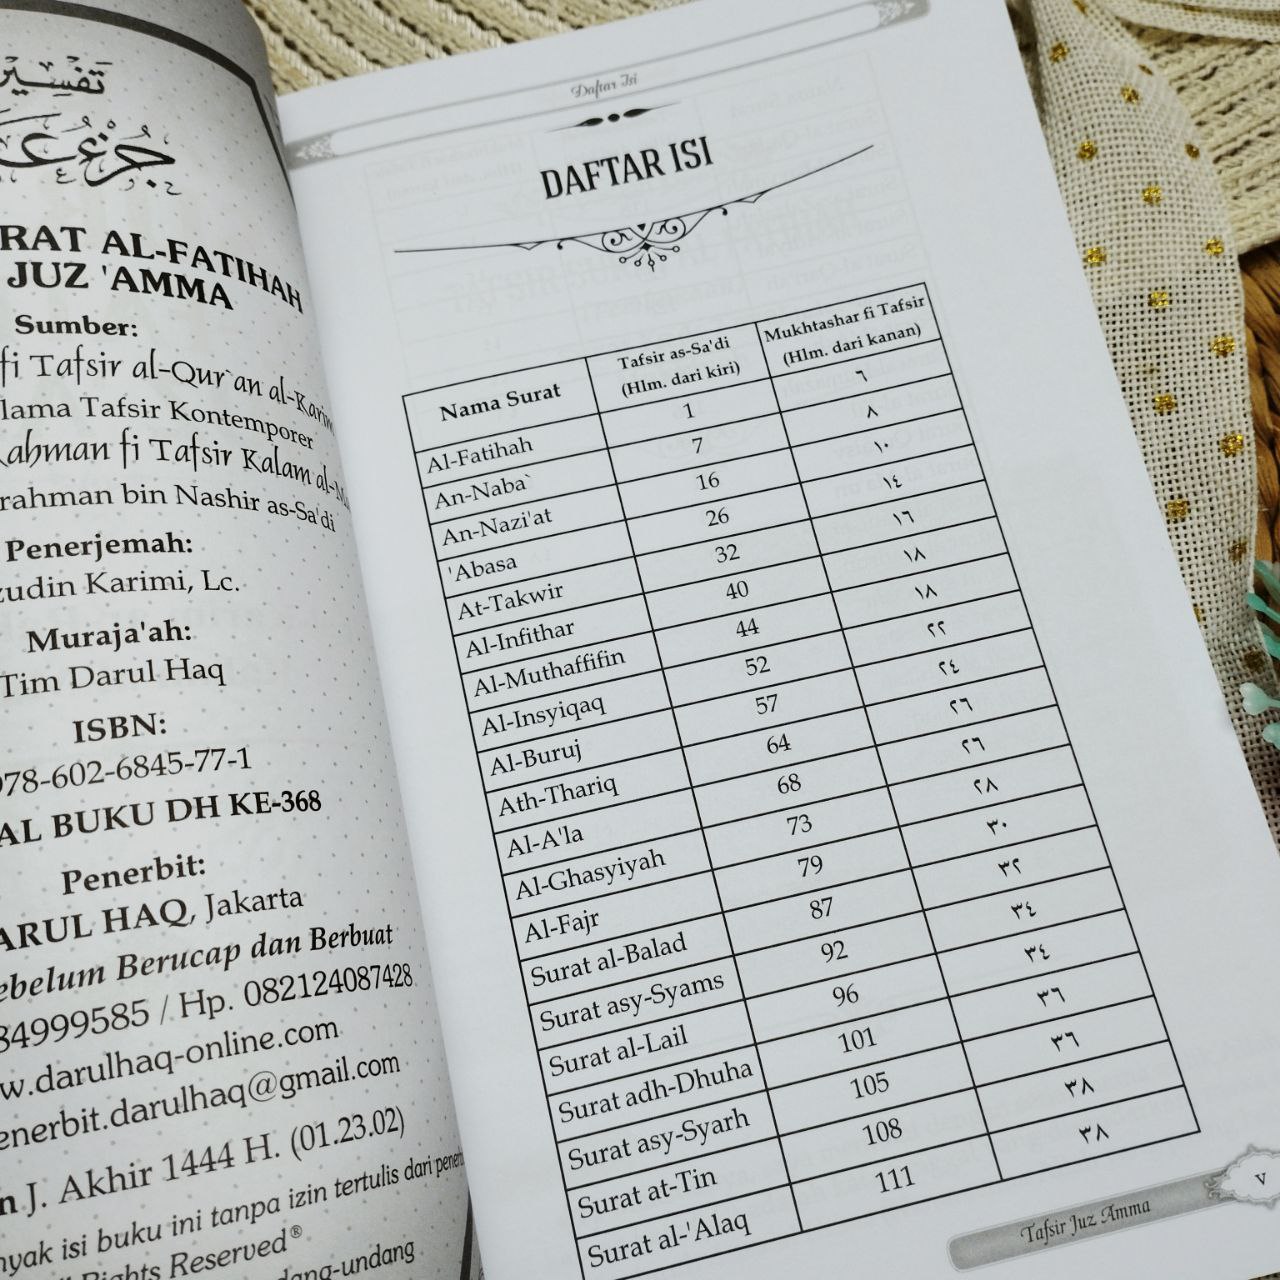 تفسير
جزء
RAT AL-FATIHAH
JUZ 'AMMA
Sumber:
fi Tafsir al-Qur`an al-Karim
lama Tafsir Kontemporer
Rahman fi Tafsir Kalam al-
rahman bin Nashir as-Sa'di
Penerjemah:
zudin Karimi, Lc.
Muraja'ah:
Tim Darul Haq
ISBN:
978-602-6845-77-1
AL BUKU DH KE-368
Penerbit:
ARUL HAQ, Jakarta
ebelum Berucap dan Berbuat
84999585 / Hp. 082124087428
w.darulhaq-online.com
enerbit.darulhaq@gmail.com
n J. Akhir 1444 H. (01.23.02)
nyak isi buku ini tanpa izin tertulis dari penerb
Rights Reserved®
dang-undang
Daftar Isi
DAFTAR ISI
Nama Surat Tafsir as-Sa'di (Hlm. dari kiri) Mukhtashar fi Tafsir (Hlm. dari kanan)
Al-Fatihah 1 ٦
An-Naba` 7 ٨
An-Nazi'at 16 ١٠
'Abasa 26 ١٤
At-Takwir 32 ١٦
Al-Infithar 40 ١٨
Al-Muthaffifin 44 ١٨
Al-Insyiqaq 52 ٢٢
Al-Buruj 57 ٢٤
Ath-Thariq 64 ٢٦
Al-A'la 68 ٢٦
Al-Ghasyiyah 73 ٢٨
Al-Fajr 79 ٣٠
Surat al-Balad 87 ٣٢
Surat asy-Syams 92 ٣٤
Surat al-Lail 96 ٣٤
Surat adh-Dhuha 101 ٣٦
Surat asy-Syarh 105 ٣٦
Surat at-Tin 108 ٣٨
Surat al-'Alaq 111 ٣٨
Tafsir Juz Amma
v